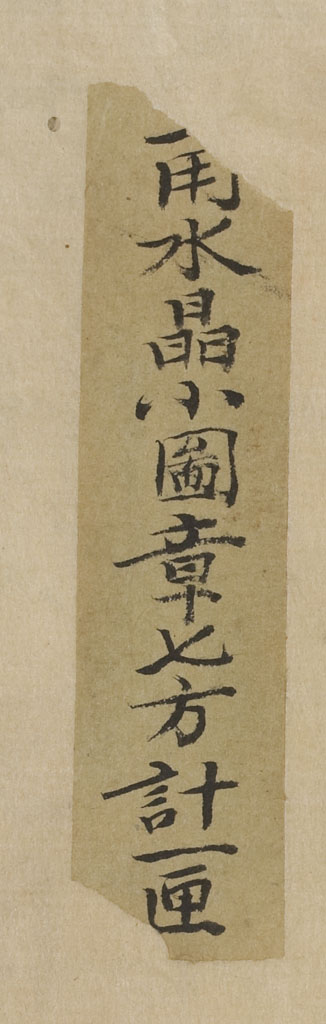 用水晶小圖章七方計一匣